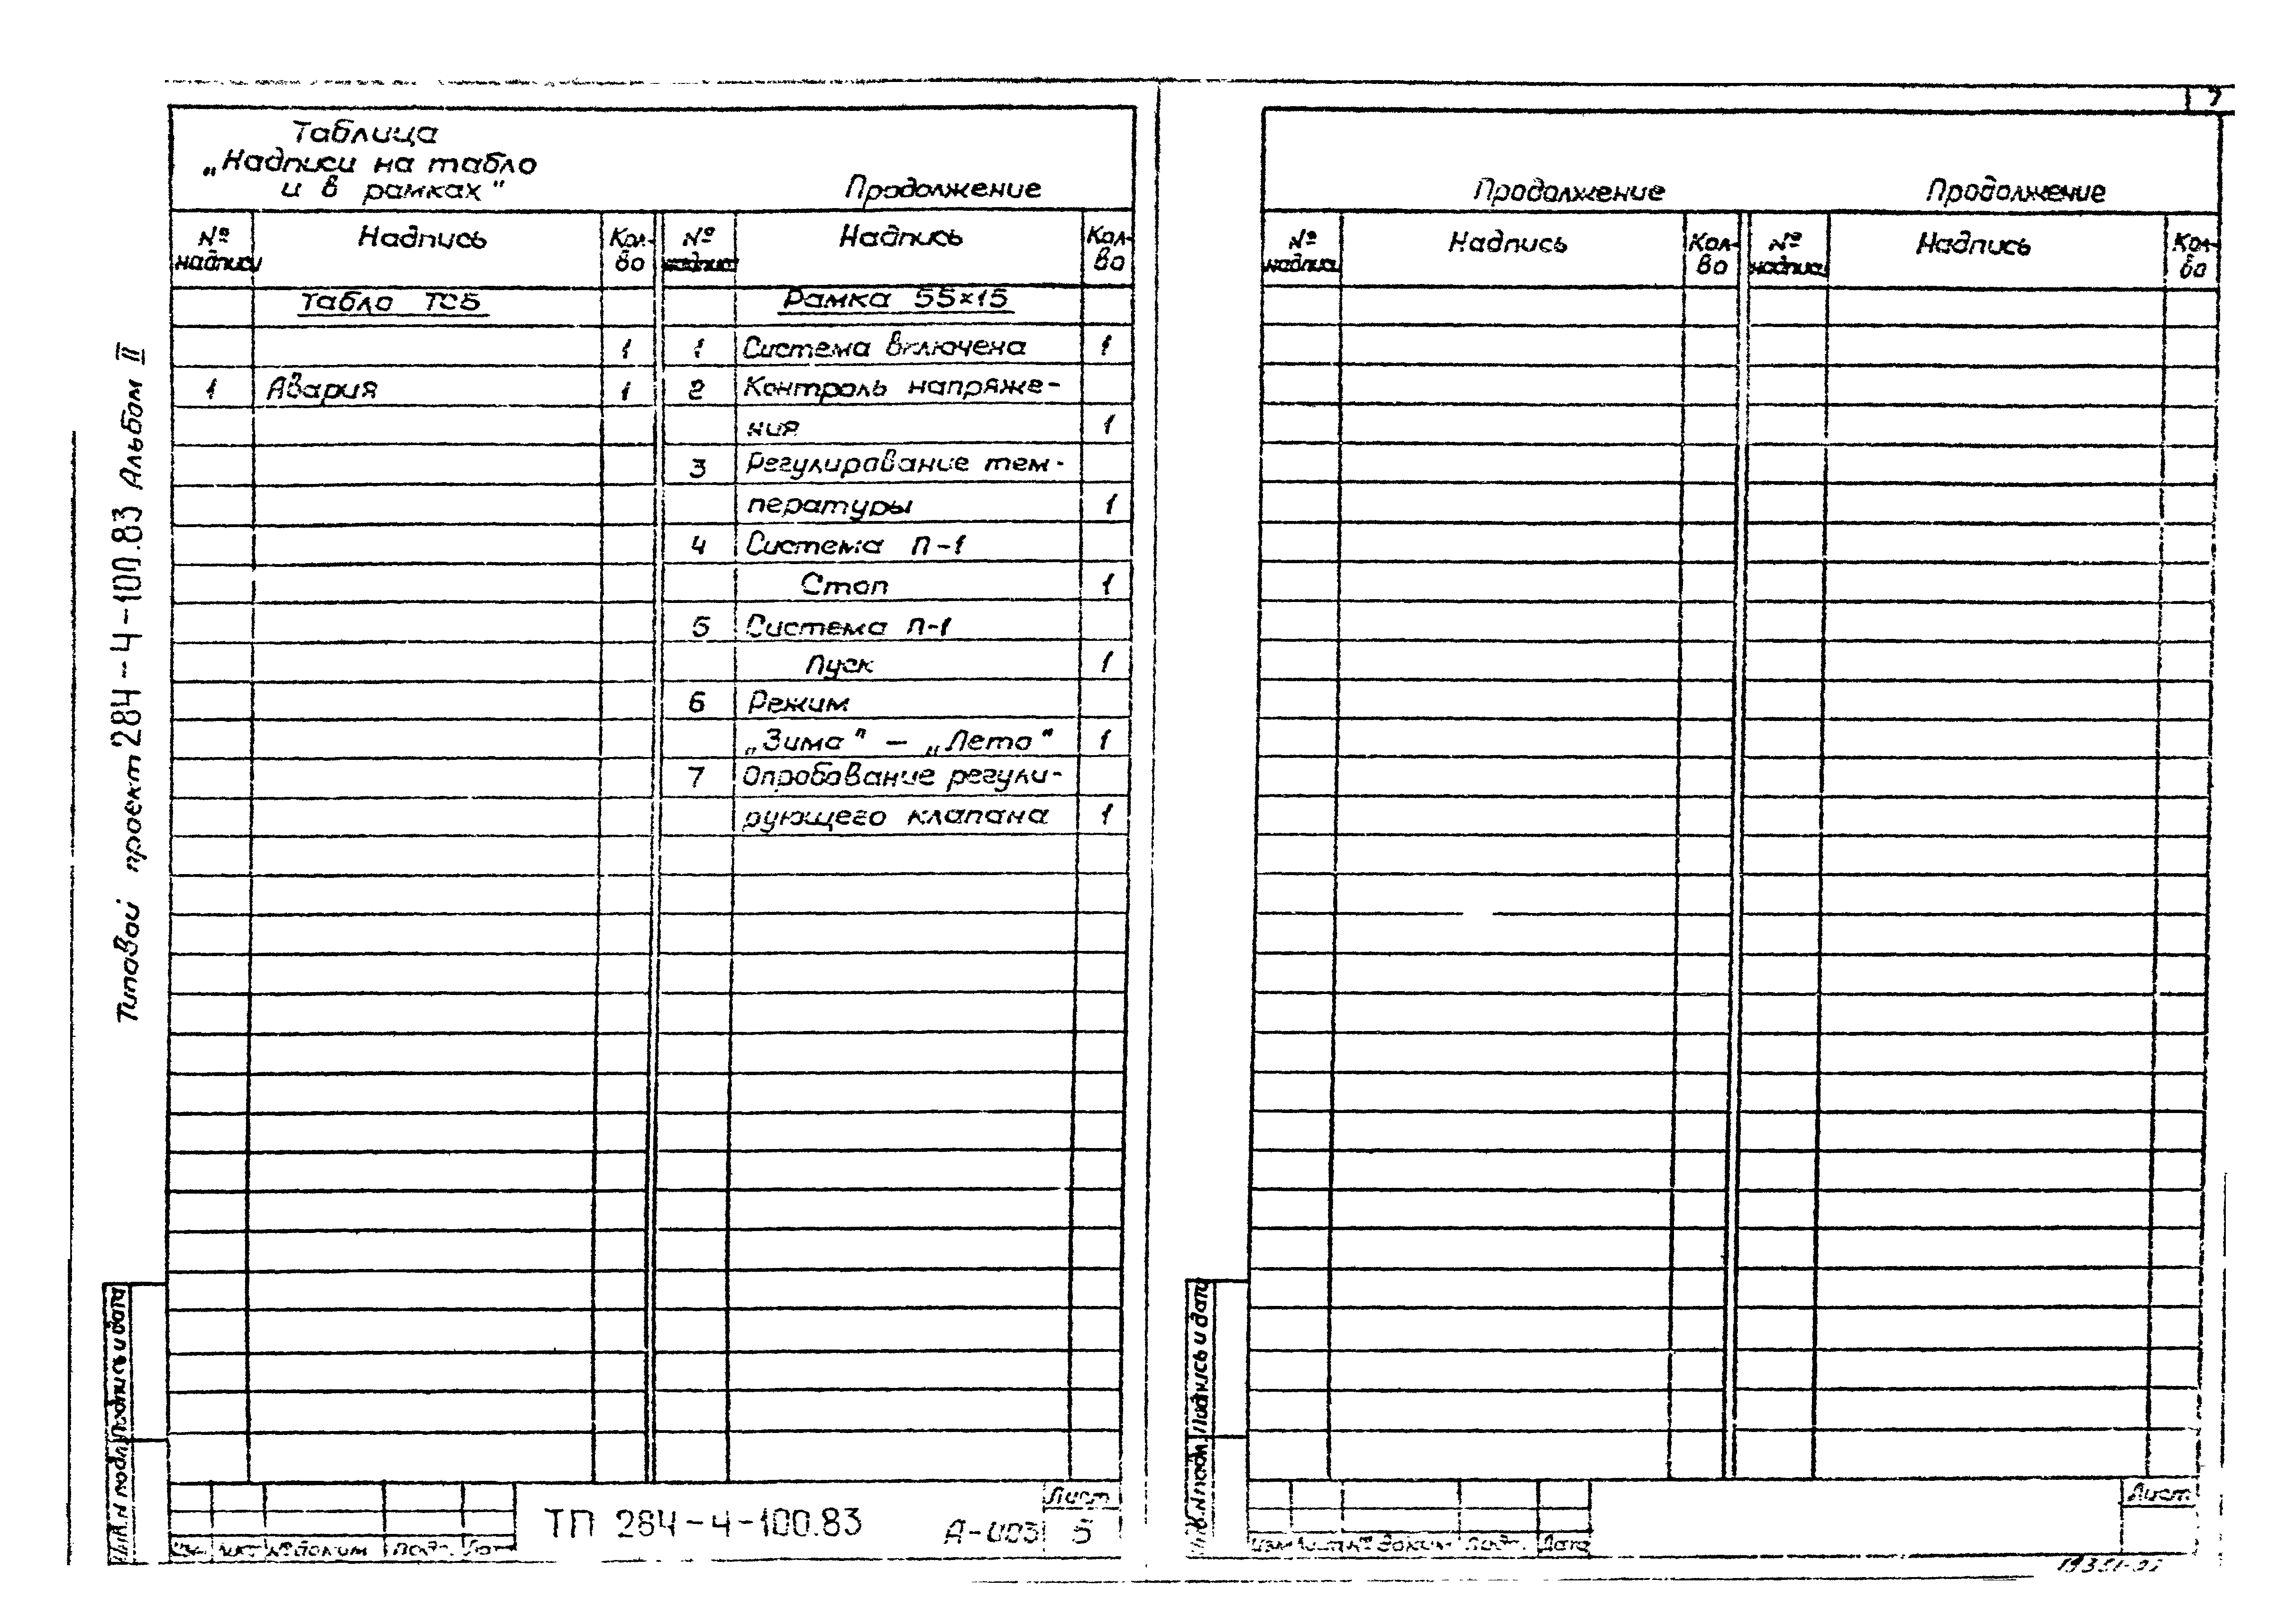 7
Таблица
„Надписи на табло
и в рамках"
Продолжение
№ надписи
Надпись
Кол-во
№ надписи
Надпись
Кол-во
Табло ТСБ
Рамка 55×15
1 1 Система включена 1
1 Авария 1 2 Контроль напряже-
ния 1
3 Регулирование тем-
пературы 1
4 Система П-1
Стоп 1
5 Система П-1
Пуск 1
6 Режим
„Зима" — „Лето" 1
7 Опробование регули-
рующего клапана 1
Типовой проект 284-4-100.83 Альбом II
Подпись и дата
Инв.№ подл.
Изм. Лист № докум. Подп. Дата
ТП 284-4-100.83
А-ИОЗ
Лист
5
Продолжение
Продолжение
№ надписи
Надпись
Кол-во
№ надписи
Надпись
Кол-во
Подпись и дата
Инв.№ подл.
Изм Лист № докум. Подп. Дата
Лист